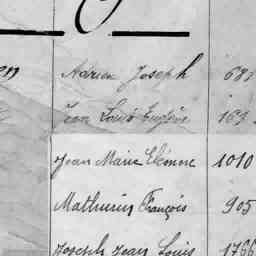 Adrien Joseph
Jean Louis Eugène
Jean Marie Etienne 1010
Mathurin François 905
Joseph Jean Louis